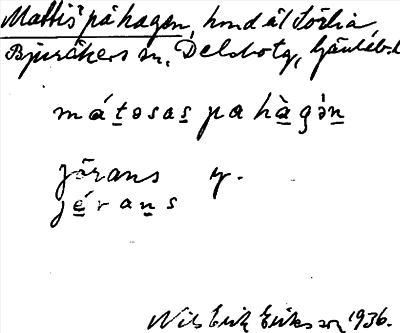 Mattis på hagen, hmd åt Sörlia
Bjuråkers sn, Delsbotg, Gävleb.l
má̱tǝsas̱ pa hà̱gǝ̀ṉ
Jörans y.
jé̱raṉs
Nils Erik Eriksson 1936.